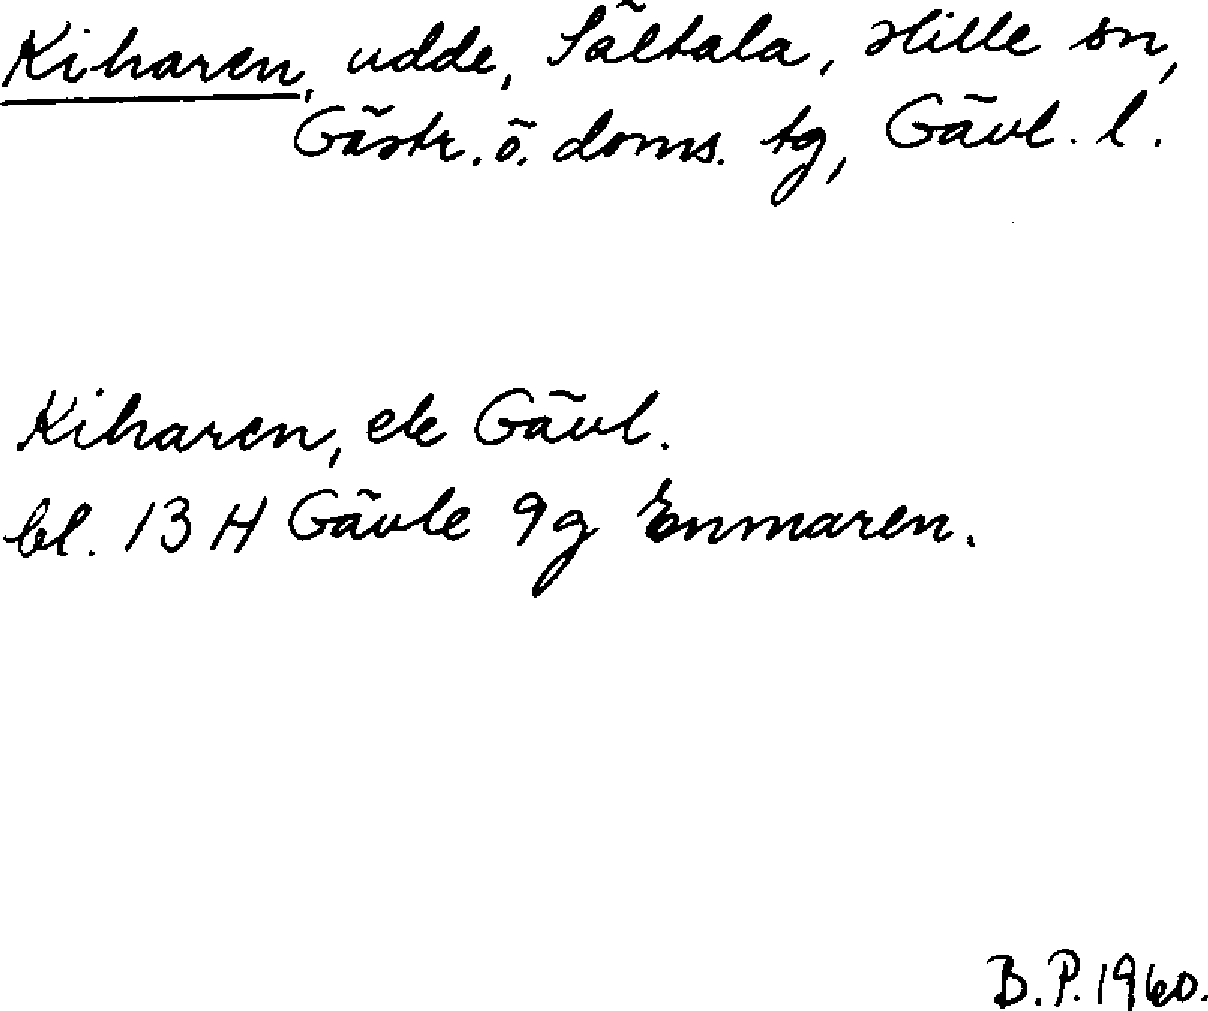 Kiharen, udde, Sältala, Hille sn,
Gästr. ö. doms. tg, Gävl. l.
Kiharen, ek Gävl.
bl. 13 H Gävle 9g Enmaren.
B.P. 1960.